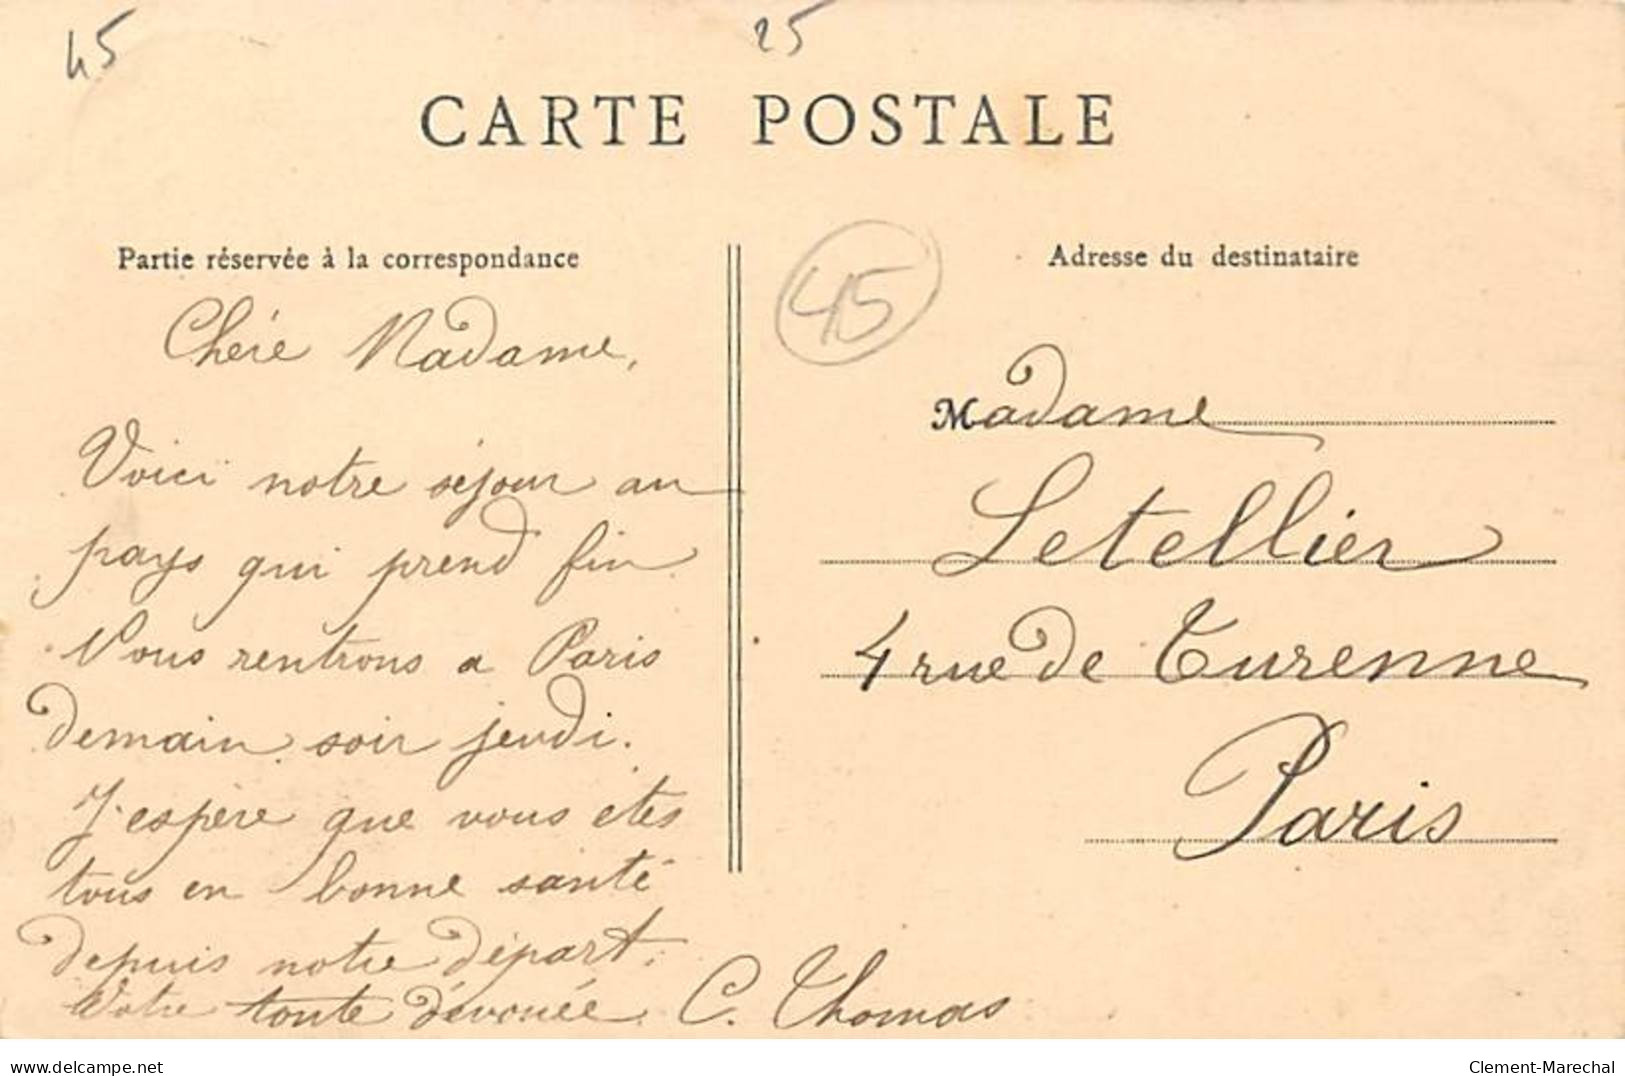 45
25
CARTE POSTALE
Partie réservée à la correspondance
Chére Madame,
Voici notre séjour au
pays qui prend fin.
Nous rentrons a Paris
demain soir jeudi.
J'espère que vous êtes
tous en bonne santé
depuis notre départ.
Votre toute dévouée C. Thomas
45
Adresse du destinataire
Madame
Letellier
4 rue de Turenne
Paris
www.delcampe.net
Clement-Marechal